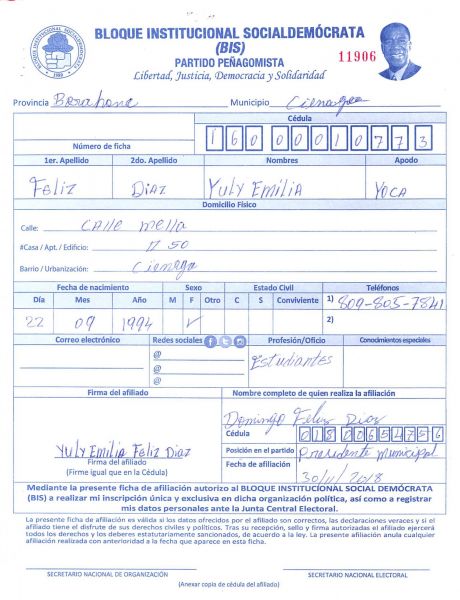 BLOQUE INSTITUCIONAL SOCIALDEMÓCRATA
(BIS)
PARTIDO PEÑAGOMISTA
Libertad, Justicia, Democracia y Solidaridad
11906
BLOQUE INSTITUCIONAL SOCIALDEMOCRATA
Provincia Barahona Municipio Cienaga
Número de ficha
Cédula
16000010773
1er. Apellido 2do. Apellido Nombres Apodo
FELIZ DIAZ YULY EMILIA YOCA
Domicilio Físico
Calle: CALLE mella
#Casa / Apt. / Edificio: N 50
Barrio / Urbanización: Cienega
Fecha de nacimiento Sexo Estado Civil Teléfonos
Día Mes Año M F Otro C S Conviviente 1) 809-805-7841
22 09 1994 ✓ 2)
Correo electrónico Redes sociales Profesión/Oficio Conocimientos especiales
@ Estudiantes
@
@
Firma del afiliado Nombre completo de quien realiza la afiliación
Domingo Feliz Diaz
Cédula 01800654756
Yuly Emilia Feliz Diaz
Posición en el partido Presidente municipal
Firma del afiliado
(Firme igual que en la Cédula)
Fecha de afiliación 30/11/2018
Mediante la presente ficha de afiliación autorizo al BLOQUE INSTITUCIONAL SOCIAL DEMÓCRATA
(BIS) a realizar mi inscripción única y exclusiva en dicha organización política, así como a registrar
mis datos personales ante la Junta Central Electoral.
La presente ficha de afiliación es válida si los datos ofrecidos por el afiliado son correctos, las declaraciones veraces y si el
afiliado tiene el disfrute de sus derechos civiles y políticos. Tras su recepción, sello y firma autorizadas el afiliado ejercerá
todos los derechos y los deberes estatutariamente sancionados, de acuerdo a la ley. La presente afiliación anula cualquier
afiliación realizada con anterioridad a la fecha que aparece en esta ficha.
SECRETARIO NACIONAL DE ORGANIZACIÓN SECRETARIO NACIONAL ELECTORAL
(Anexar copia de cédula del afiliado)